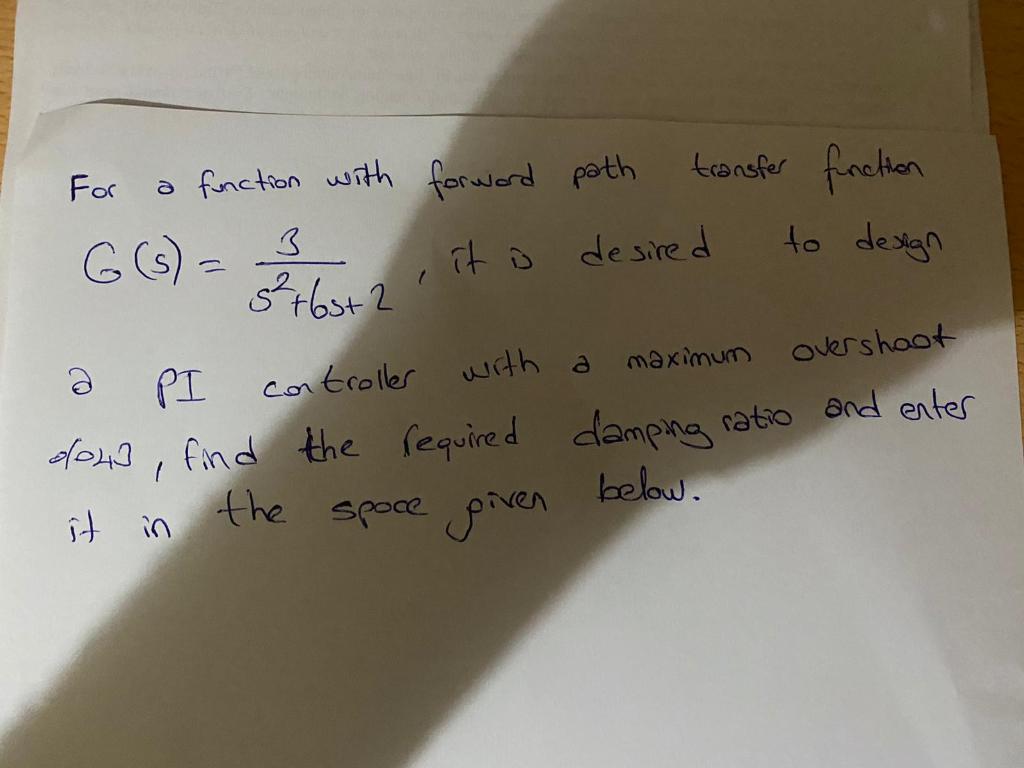 For a function with forward path transfer function
G(s) = 3 / (s²+6s+2) , it is desired to design
a PI controller with a maximum overshoot
%43 , find the required damping ratio and enter
it in the space given below.